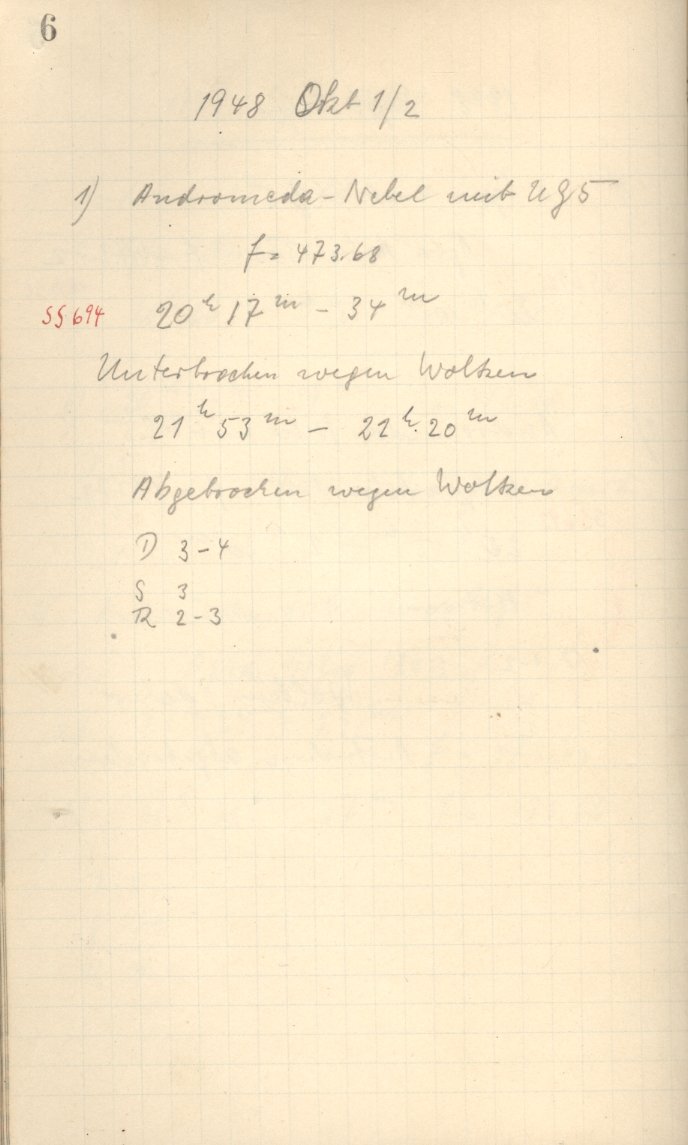 6
1948 Okt 1/2
1) Andromeda-Nebel mit UG5
f = 473.68
SS 694 20h 17m - 34m
Unterbrochen wegen Wolken
21h 53m - 22h 20m
Abgebrochen wegen Wolken
D 3-4
S 3
R 2-3